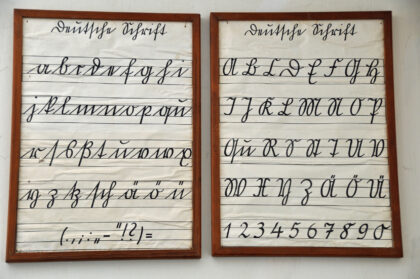 Deutsche Schrift
a b c d e f g h i
j k l m n o p qu
r ſ s ß t u v w x
y z tz sch ä ö ü
(.,;:„-"!?)=
Deutsche Schrift
A B C D E F G H
I J K L M N O P
Qu R S St T U V
W X Y Z Ä Ö Ü
1 2 3 4 5 6 7 8 9 0